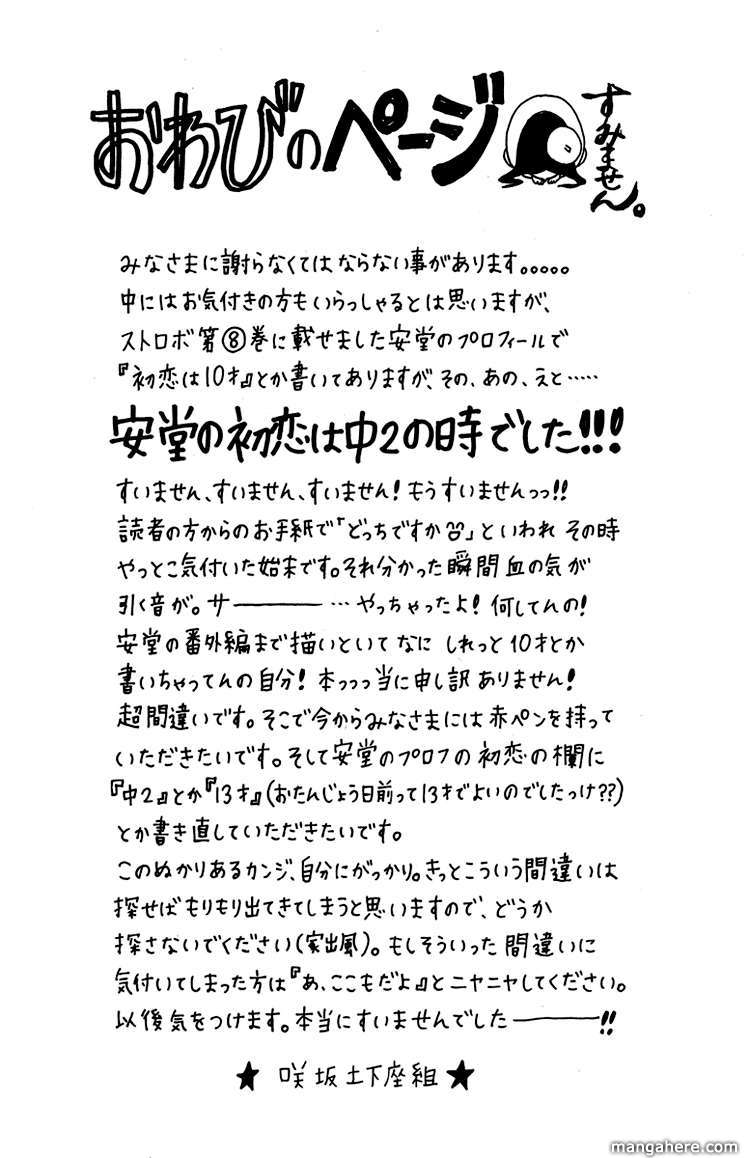 おわびのページ
すみません。
みなさまに謝らなくてはならない事があります。。。。。
中にはお気付きの方もいらっしゃるとは思いますが、
ストロボ第⑧巻に載せました安堂のプロフィールで
『初恋は10才』とか書いてありますが、その、あの、えと……
安堂の初恋は中2の時でした!!!
すいません、すいません、すいません!もうすいませんっっ!!
読者の方からのお手紙で「どっちですか」といわれ その時
やっとこ気付いた始末です。それ分かった瞬間血の気が
引く音が。サ――――…やっちゃったよ!何してんの!
安堂の番外編まで描いといて なに しれっと10才とか
書いちゃってんの自分!本っっっ当に申し訳ありません!
超間違いです。そこで今からみなさまには赤ペンを持って
いただきたいです。そして安堂のプロフの初恋の欄に
『中2』とか『13才』(おたんじょう日前って13才でよいのでしたっけ??)
とか書き直していただきたいです。
このぬかりあるカンジ、自分にがっかり。きっとこういう間違いは
探せばもりもり出てきてしまうと思いますので、どうか
探さないでください(家出風)。もしそういった間違いに
気付いてしまった方は『あ、ここもだよ』とニヤニヤしてください。
以後気をつけます。本当にすいませんでした――――!!
★ 咲坂土下座組 ★
mangahere.com